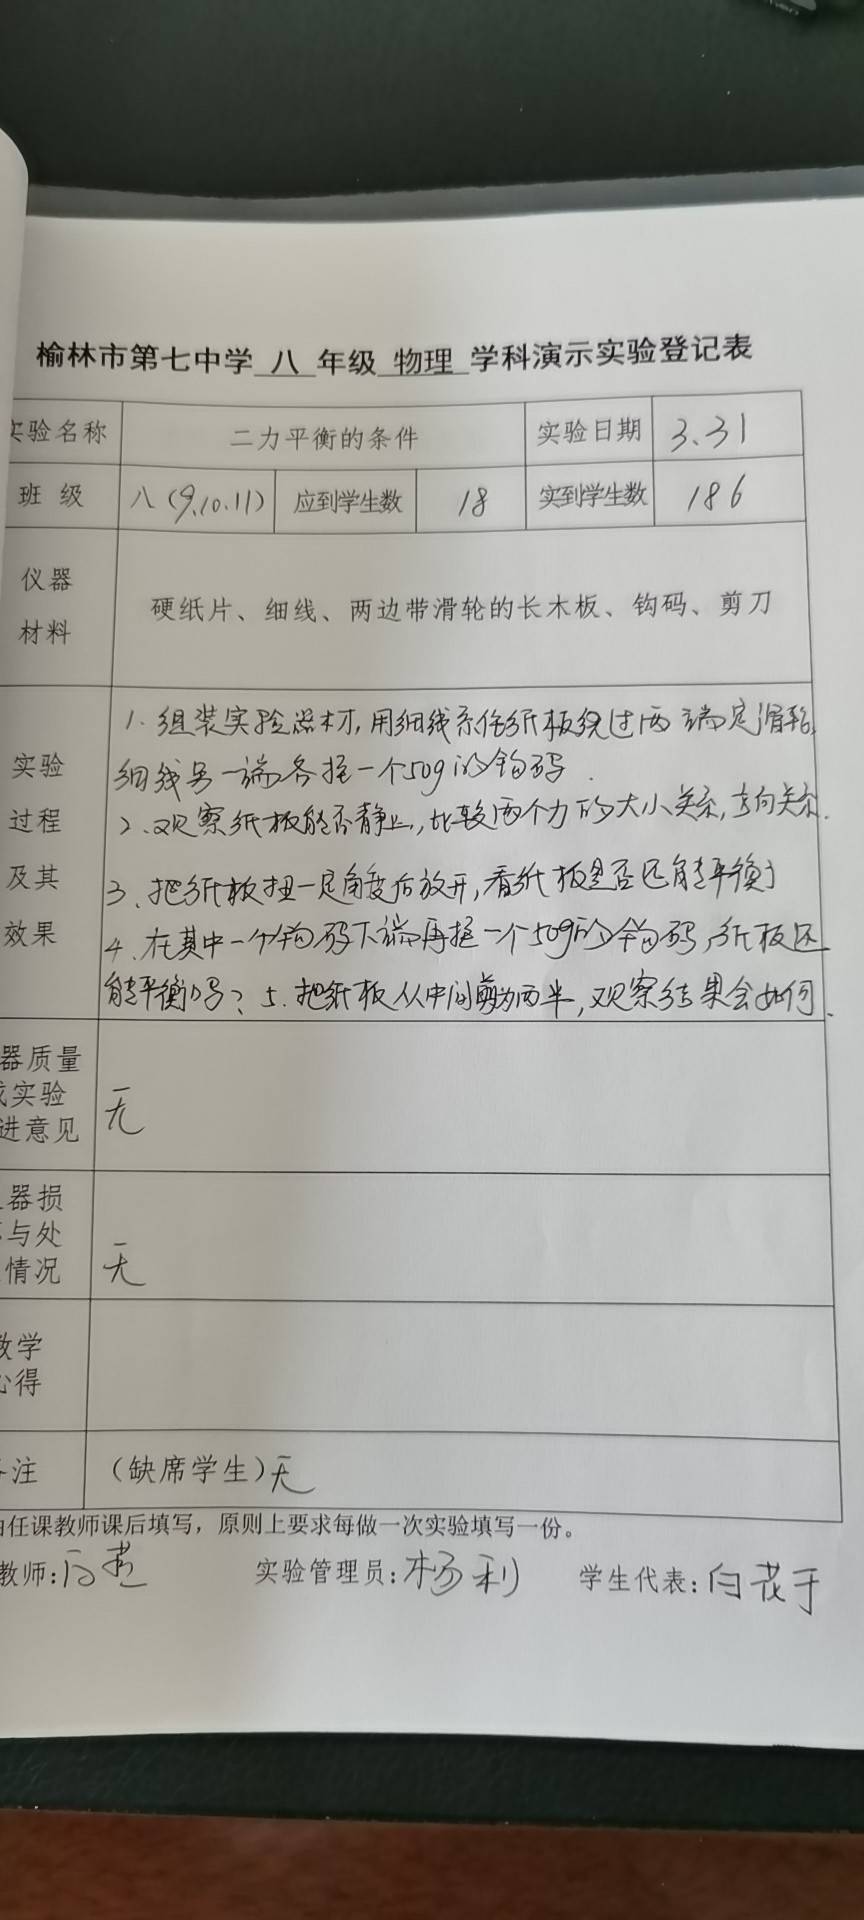 榆林市第七中学 八 年级 物理 学科演示实验登记表
实验名称 二力平衡的条件 实验日期 3.31
班 级 八(9.10.11) 应到学生数 18 实到学生数 186
仪器
材料
硬纸片、细线、两边带滑轮的长木板、钩码、剪刀
实验
过程
及其
效果
1. 组装实验器材,用细线系住纸板绕过两端定滑轮,
细线另一端各挂一个50g的钩码.
2、观察纸板能否静止,比较两个力的大小关系,方向关系.
3、把纸板扭一定角度后放开,看纸板是否还能平衡
4、在其中一个钩码下端再挂一个50g的钩码,纸板还
能平衡吗? 5. 把纸板从中间剪为两半,观察结果会如何.
器质量
实验
进意见
无
器损
与处
情况
无
教学
心得
注 (缺席学生)无
任课教师课后填写,原则上要求每做一次实验填写一份。
教师: 实验管理员:杨利 学生代表:白